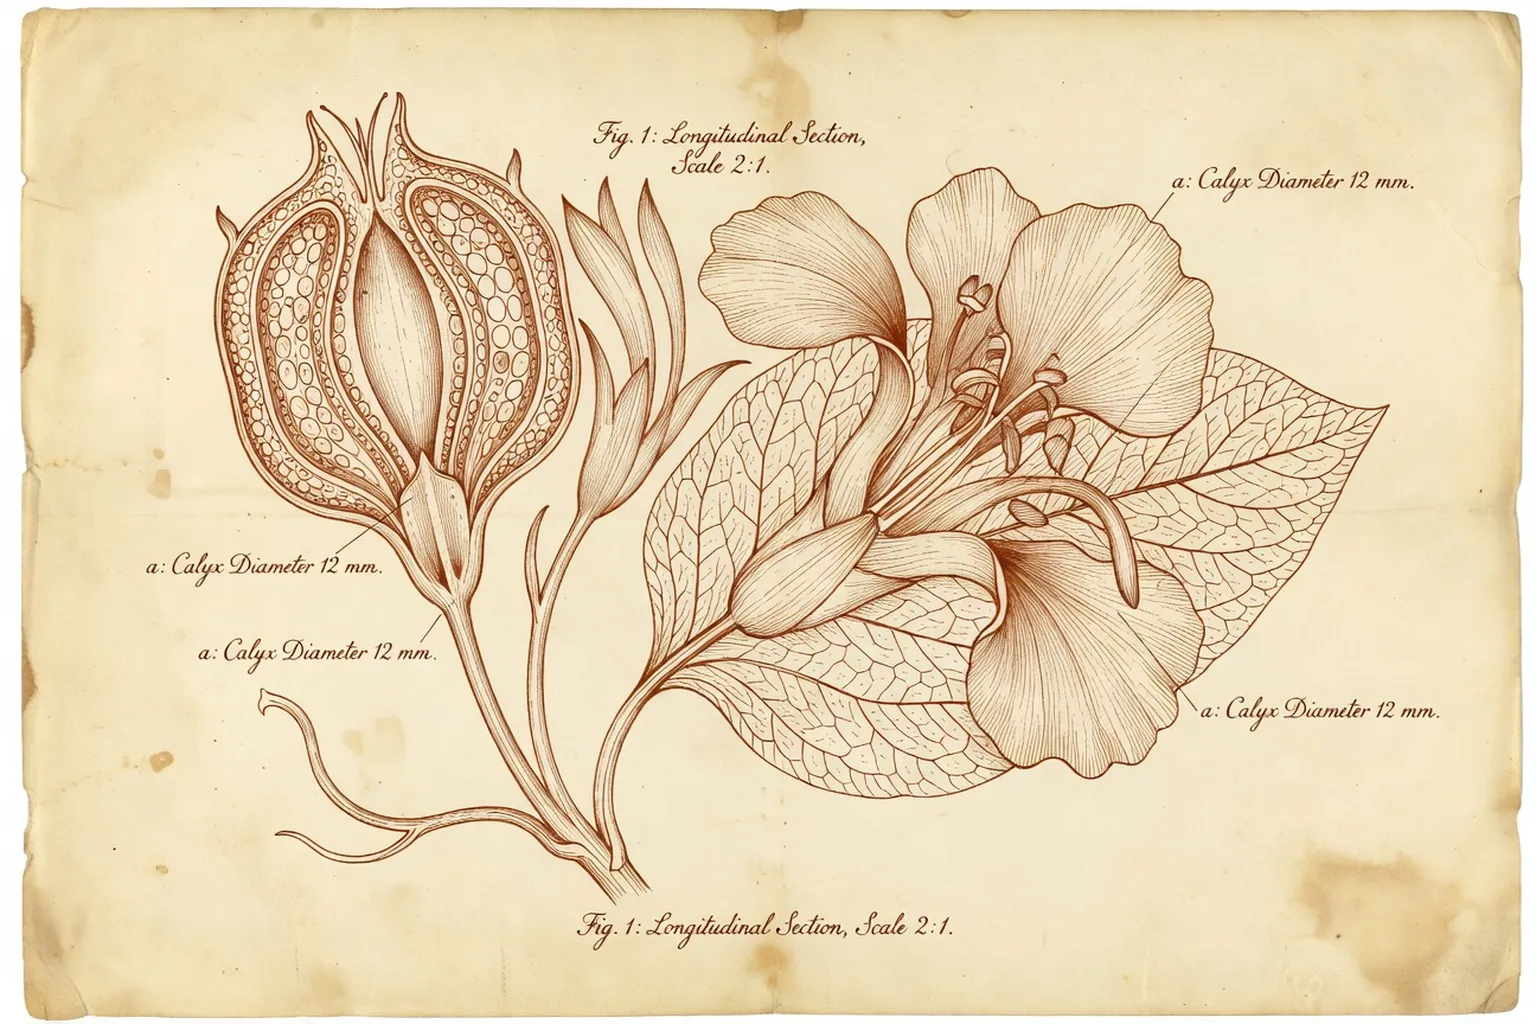 Fig. 1: Longitudinal Section,
Scale 2:1.
a: Calyx Diameter 12 mm.
a: Calyx Diameter 12 mm.
a: Calyx Diameter 12 mm.
a: Calyx Diameter 12 mm.
Fig. 1: Longitudinal Section, Scale 2:1.